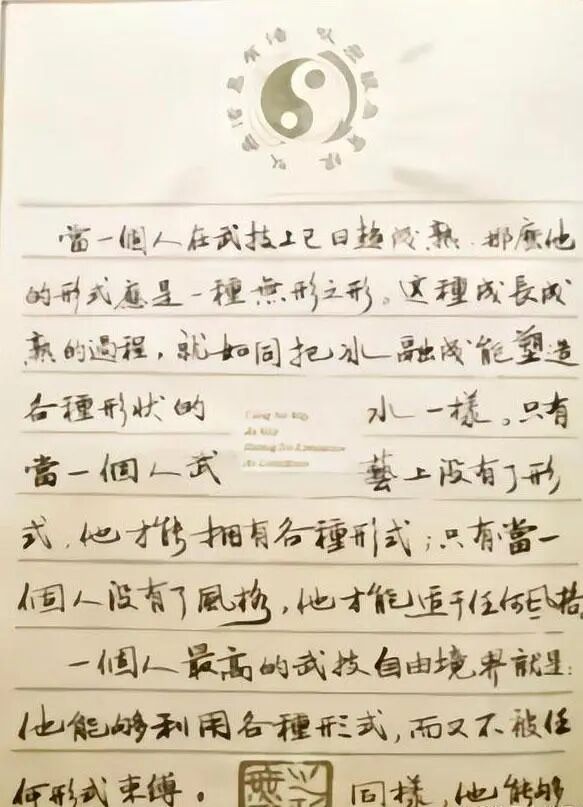 當一個人在武技上已日趨成熟，那麼他
的形式應是一種無形之形。这種成長成
熟的過程，就如同把冰融成能塑造
各種形狀的水一樣。只有
當一個人武藝上没有了形
式，他才能拥有各種形式；只有當一
個人没有了風格，他才能适于任何风格。
一個人最高的武技自由境界就是：
他能够利用各種形式，而又不被任
何形式束缚。同樣，他能够